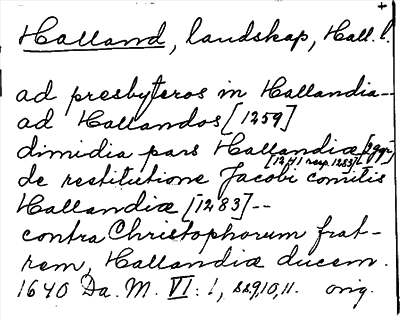 +
Halland, landskap, Hall. l.
ad presbyteros in Hallandia--
ad Hallandos [1259]
dimidia pars Hallandiæ
[1241 resp. 1283]
de restitutione Jacobi comitis
Hallandiæ [1283]--
contra Christophorum frat-
rem, Hallandiæ ducem.
1640 Da. M. VI: 1, ss. 9, 10, 11. orig.